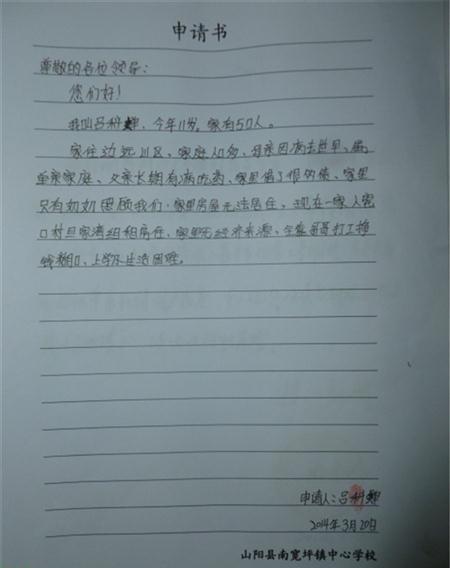 申请书
尊敬的各位领导：
您们好！
我叫吕科，今年11岁。家有5口人。
家住边远山区、家庭人口多，母亲因病去世早、属
单亲家庭、父亲长期有病吃药、家里借了很多债、家里
只有奶奶照顾我们，家里房屋无法居住，现在一家人寄
口村旦家湾组租房住，家里无经济来源，全靠哥哥打工挣
钱糊口、上学生活困难。
申请人：吕科
2014年3月20日
山阳县南宽坪镇中心学校